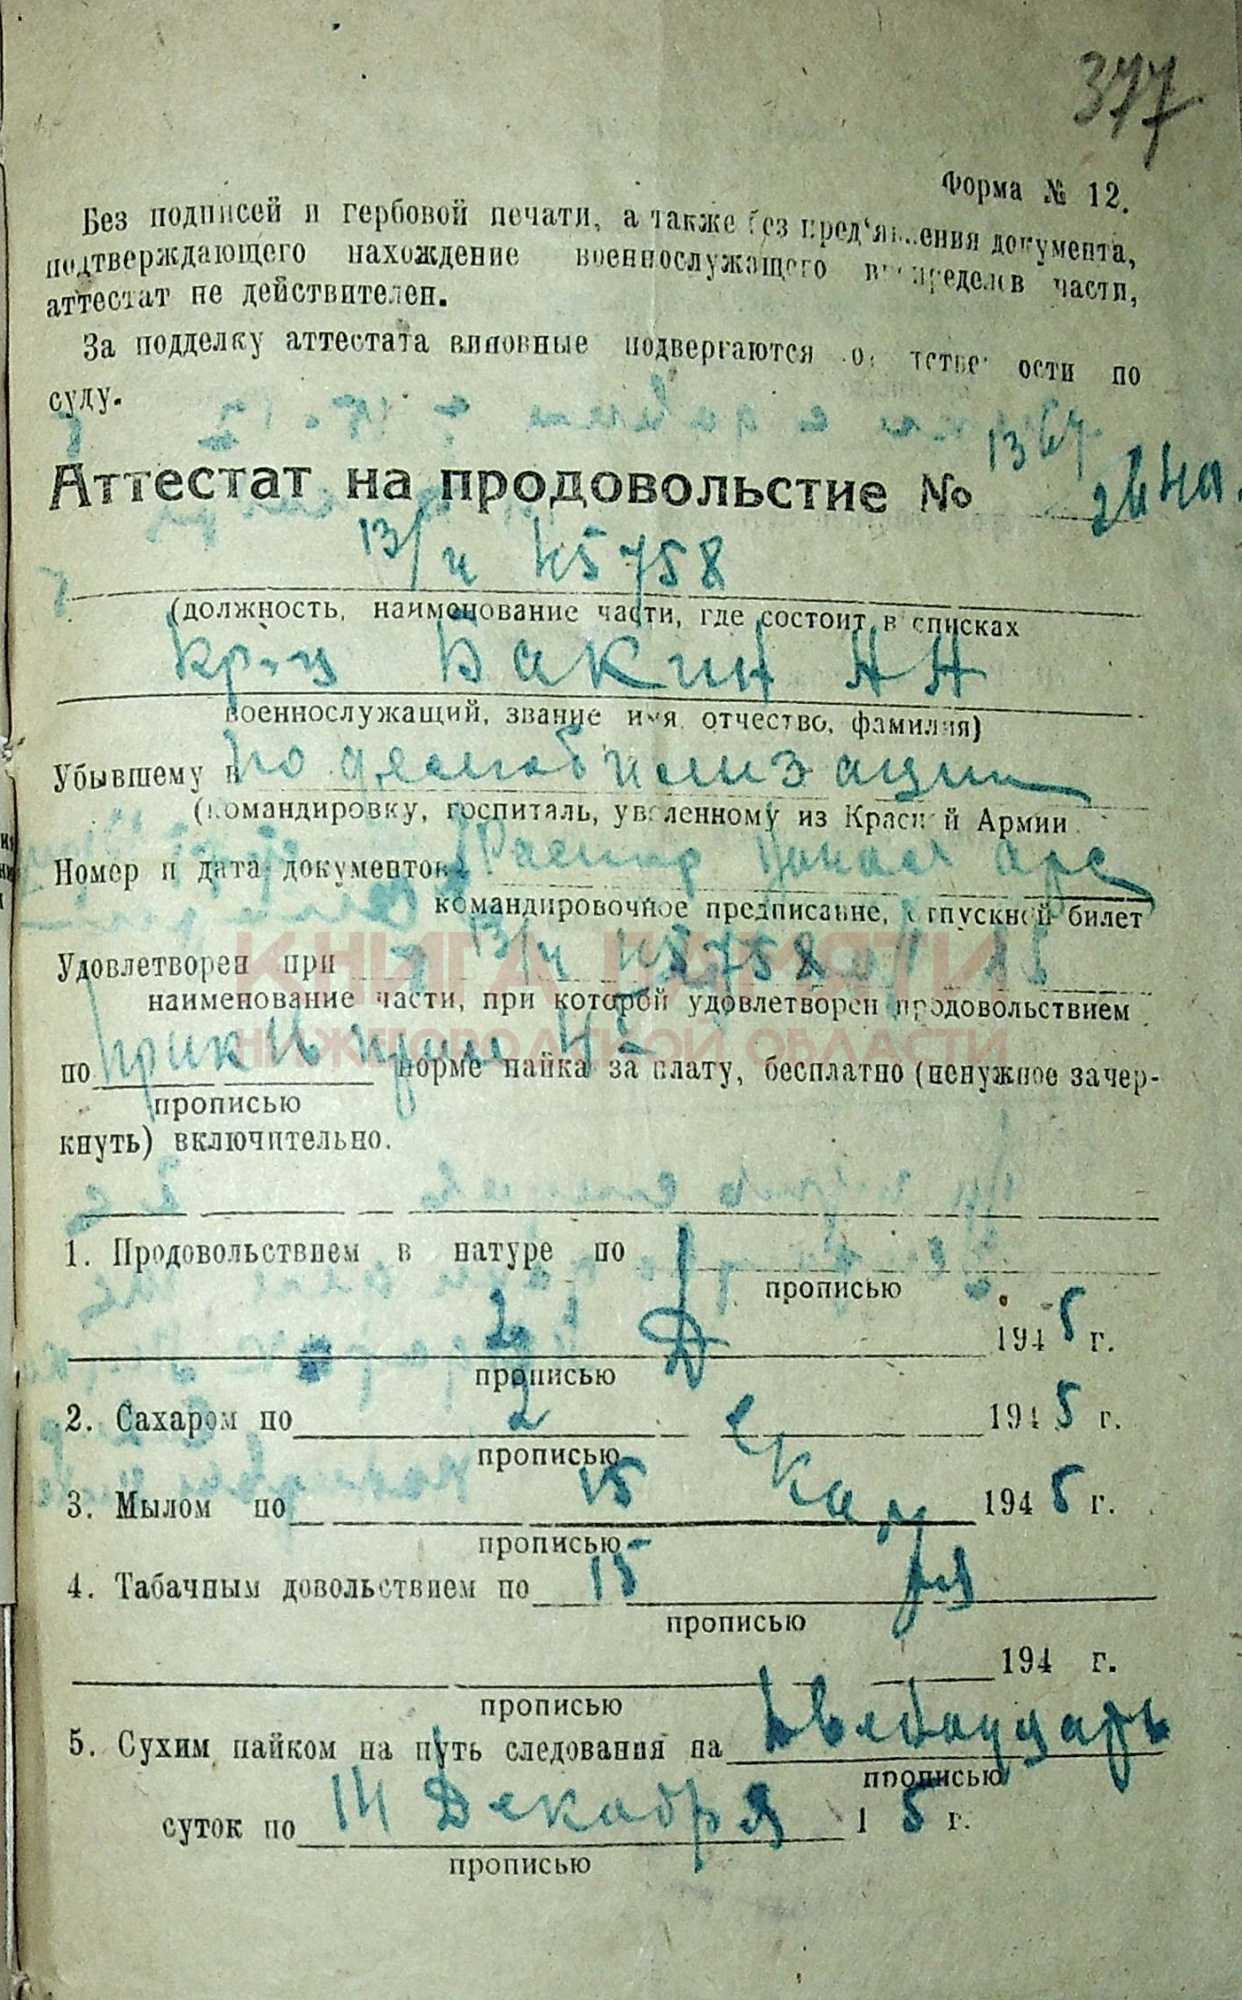 377
Форма № 12.
Без подписей и гербовой печати, а также без пред'явления документа,
подтверждающего нахождение военнослужащего вне пределов части,
аттестат не действителен.
За подделку аттестата виновные подвергаются ответственности по
суду.
Аттестат на продовольствие № 1367
13/ч №5758
(должность, наименование части, где состоит в списках
Кр-ц Бакин А А
военнослужащий, звание имя отчество, фамилия)
Убывшему в по демобилизации
(командировку, госпиталь, уволенному из Красной Армии
Номер и дата документов
командировочное предписание, отпускной билет
КНИГА ПАМЯТИ
Удовлетворен при 13/ч №5758
наименование части, при которой удовлетворен продовольствием
НИЖЕГОРОДСКОЙ ОБЛАСТИ
по норме пайка за плату, бесплатно (ненужное зачер-
прописью
кнуть) включительно.
1. Продовольствием в натуре по
прописью
2 Д 1945 г.
прописью
2. Сахаром по 2 е 1945 г.
прописью
3. Мылом по 15 ка 1945 г.
прописью
4. Табачным довольствием по 15 бря
прописью
194 г.
прописью
5. Сухим пайком на путь следования на двенадцать
прописью
суток по 14 Декабря 1 5 г.
прописью